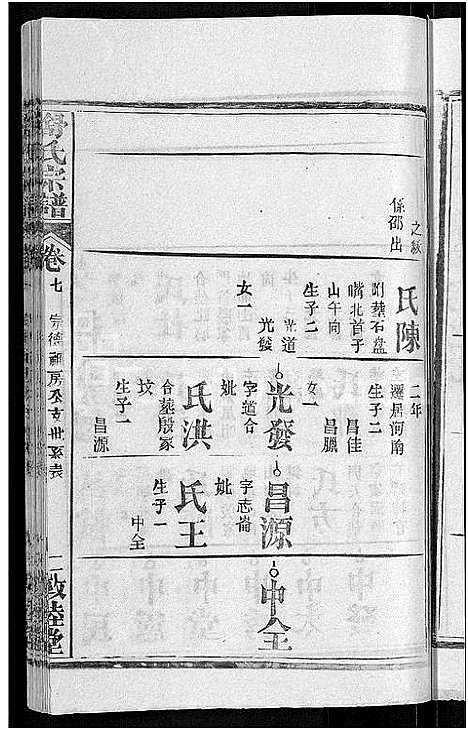 之紱
係邵出
氏陳
附塟石盤
嘴北首子
山午向
生子二
光道
光發
女一
二年
遷居河南
生子二
昌佳
昌臘
女一
光發
字道合
妣
氏洪
合塟殷冢
坟
生子一
昌源
昌源
字志崙
妣
氏王
生子一
中全
中全
氏宗譜
卷七
宗德祠房
世系表
二
敦睦堂